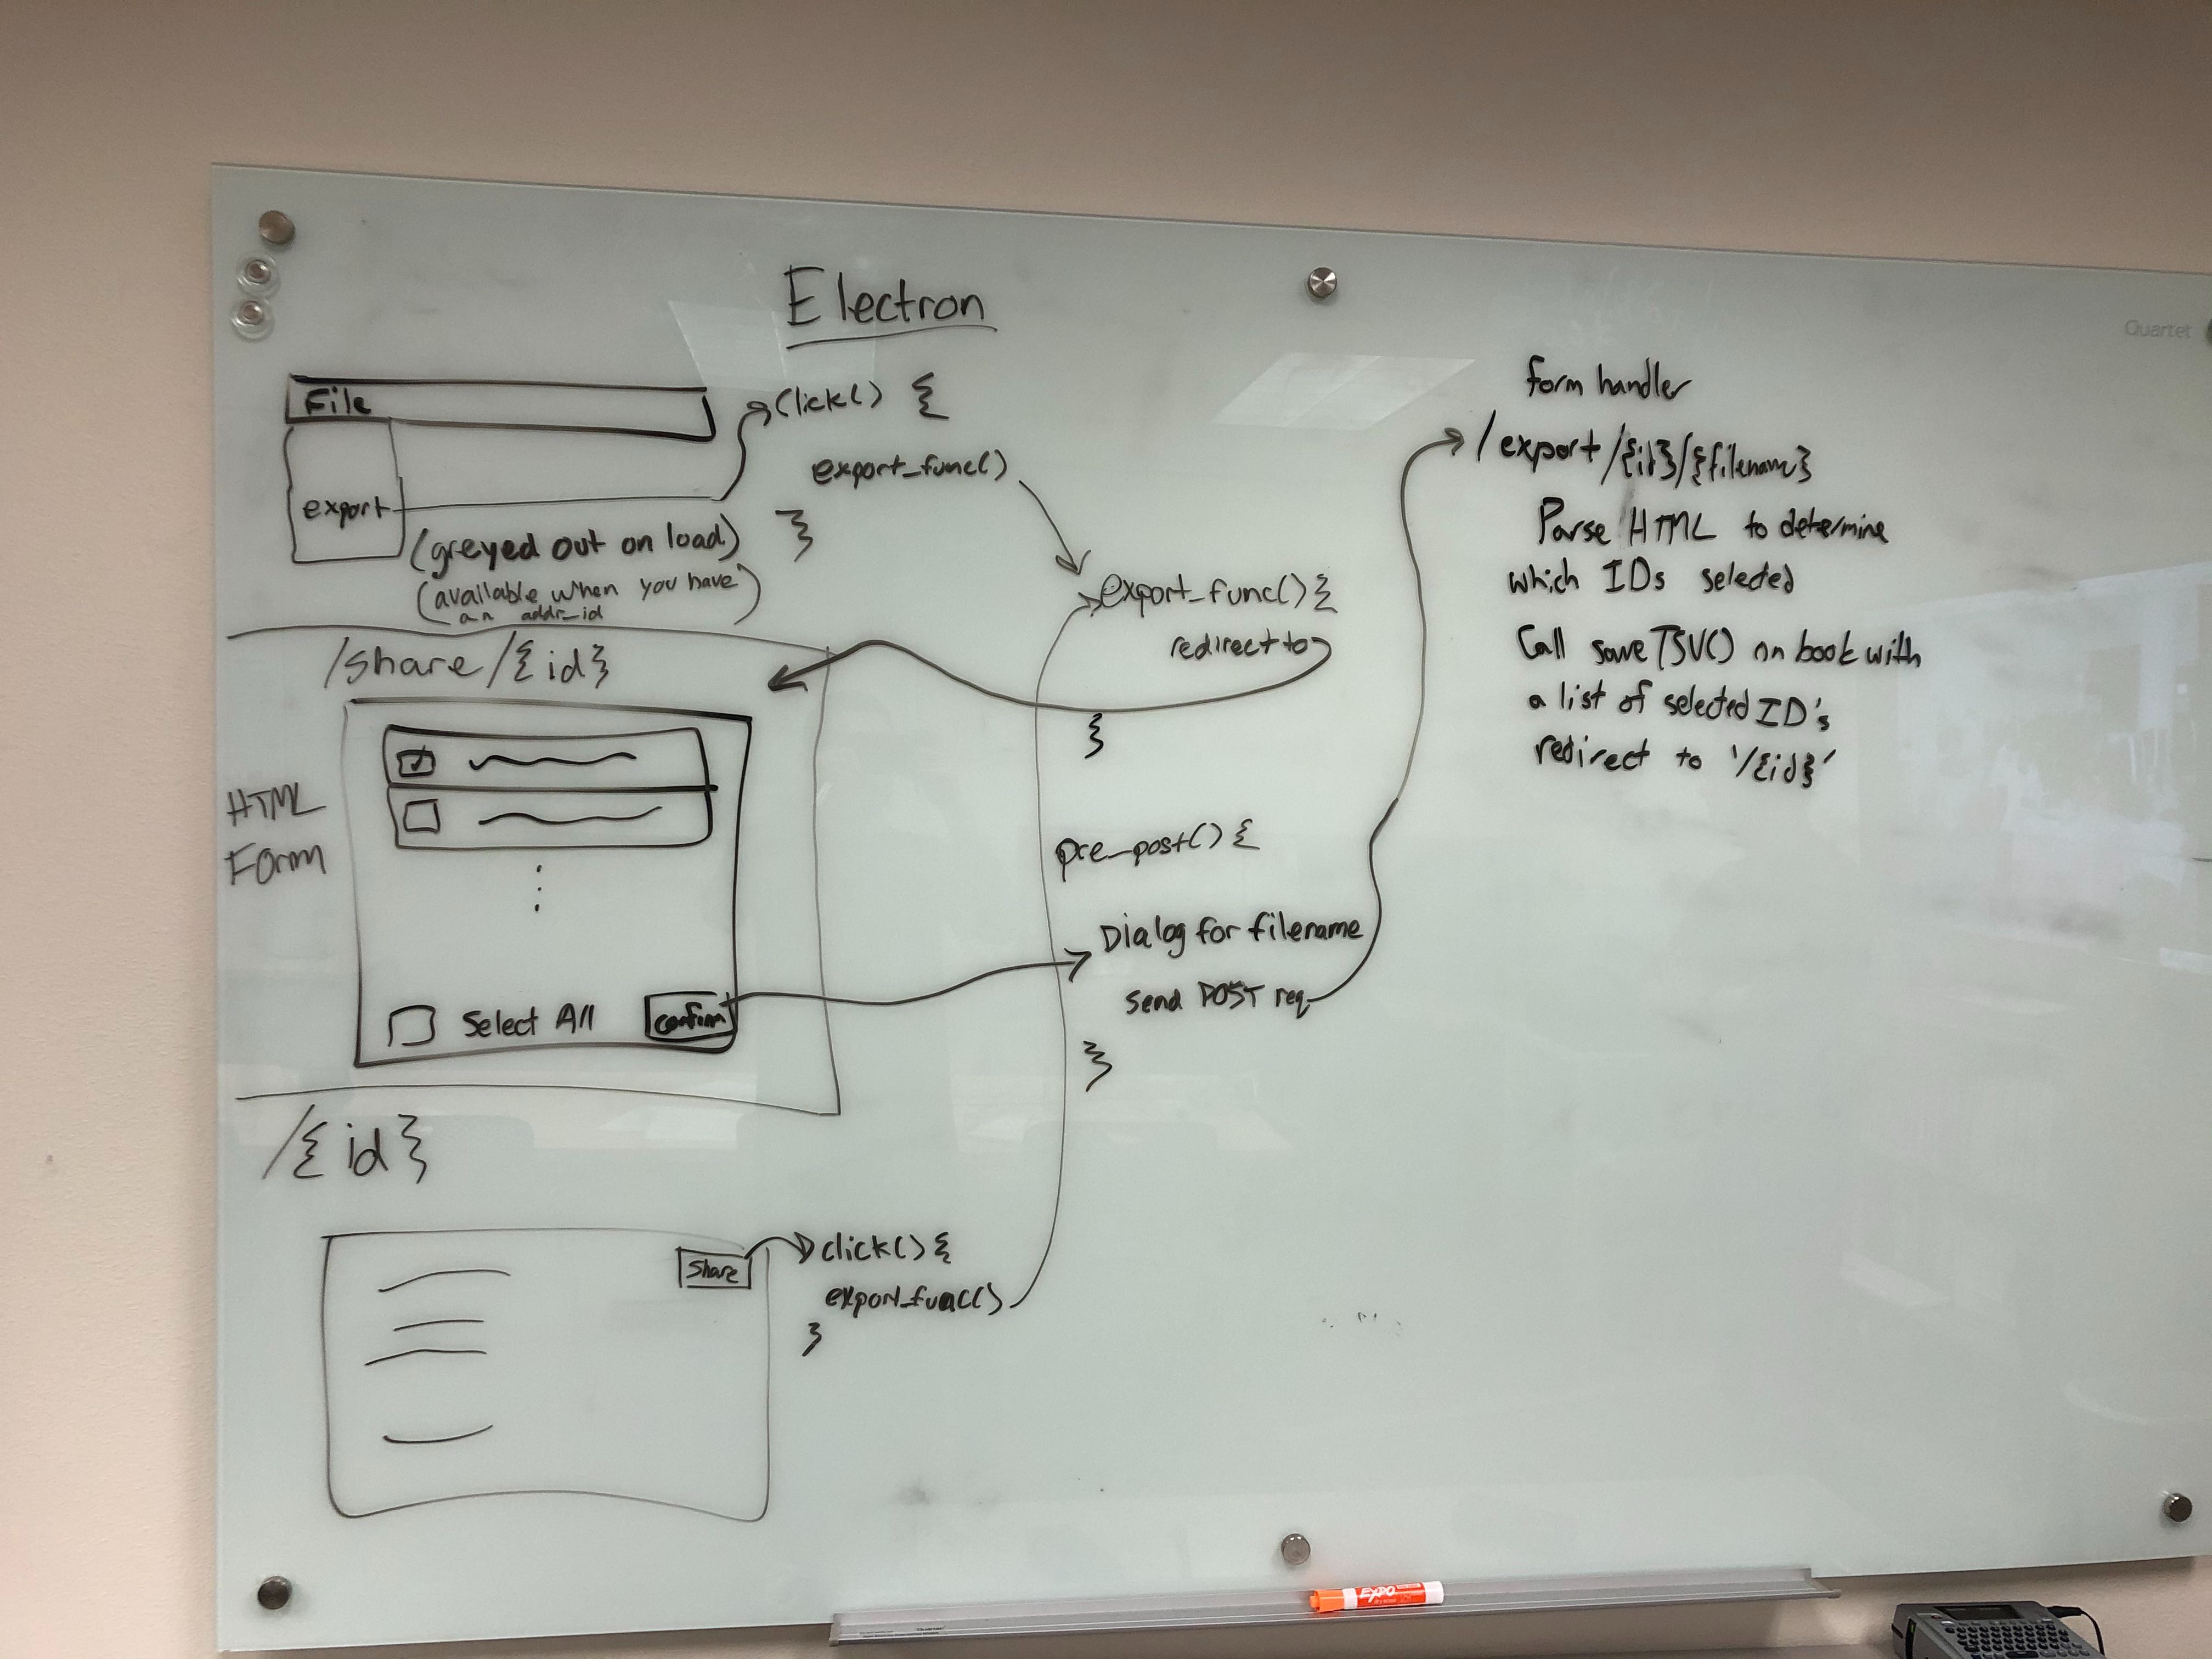 Electron
File
export
(greyed out on load)
(available when you have
an addr_id)
click() {
export_func()
}
/share/{id}
HTML
Form
Select All
Confirm
/{id}
Share
click() {
export_func()
}
export_func() {
redirect to
}
pre_post() {
Dialog for filename
Send POST req
}
form handler
/export/{id}/{filename}
Parse HTML to determine
which IDs selected
Call saveTSV() on book with
a list of selected ID's
redirect to '/{id}'
Quartet
EXPO
Quartet